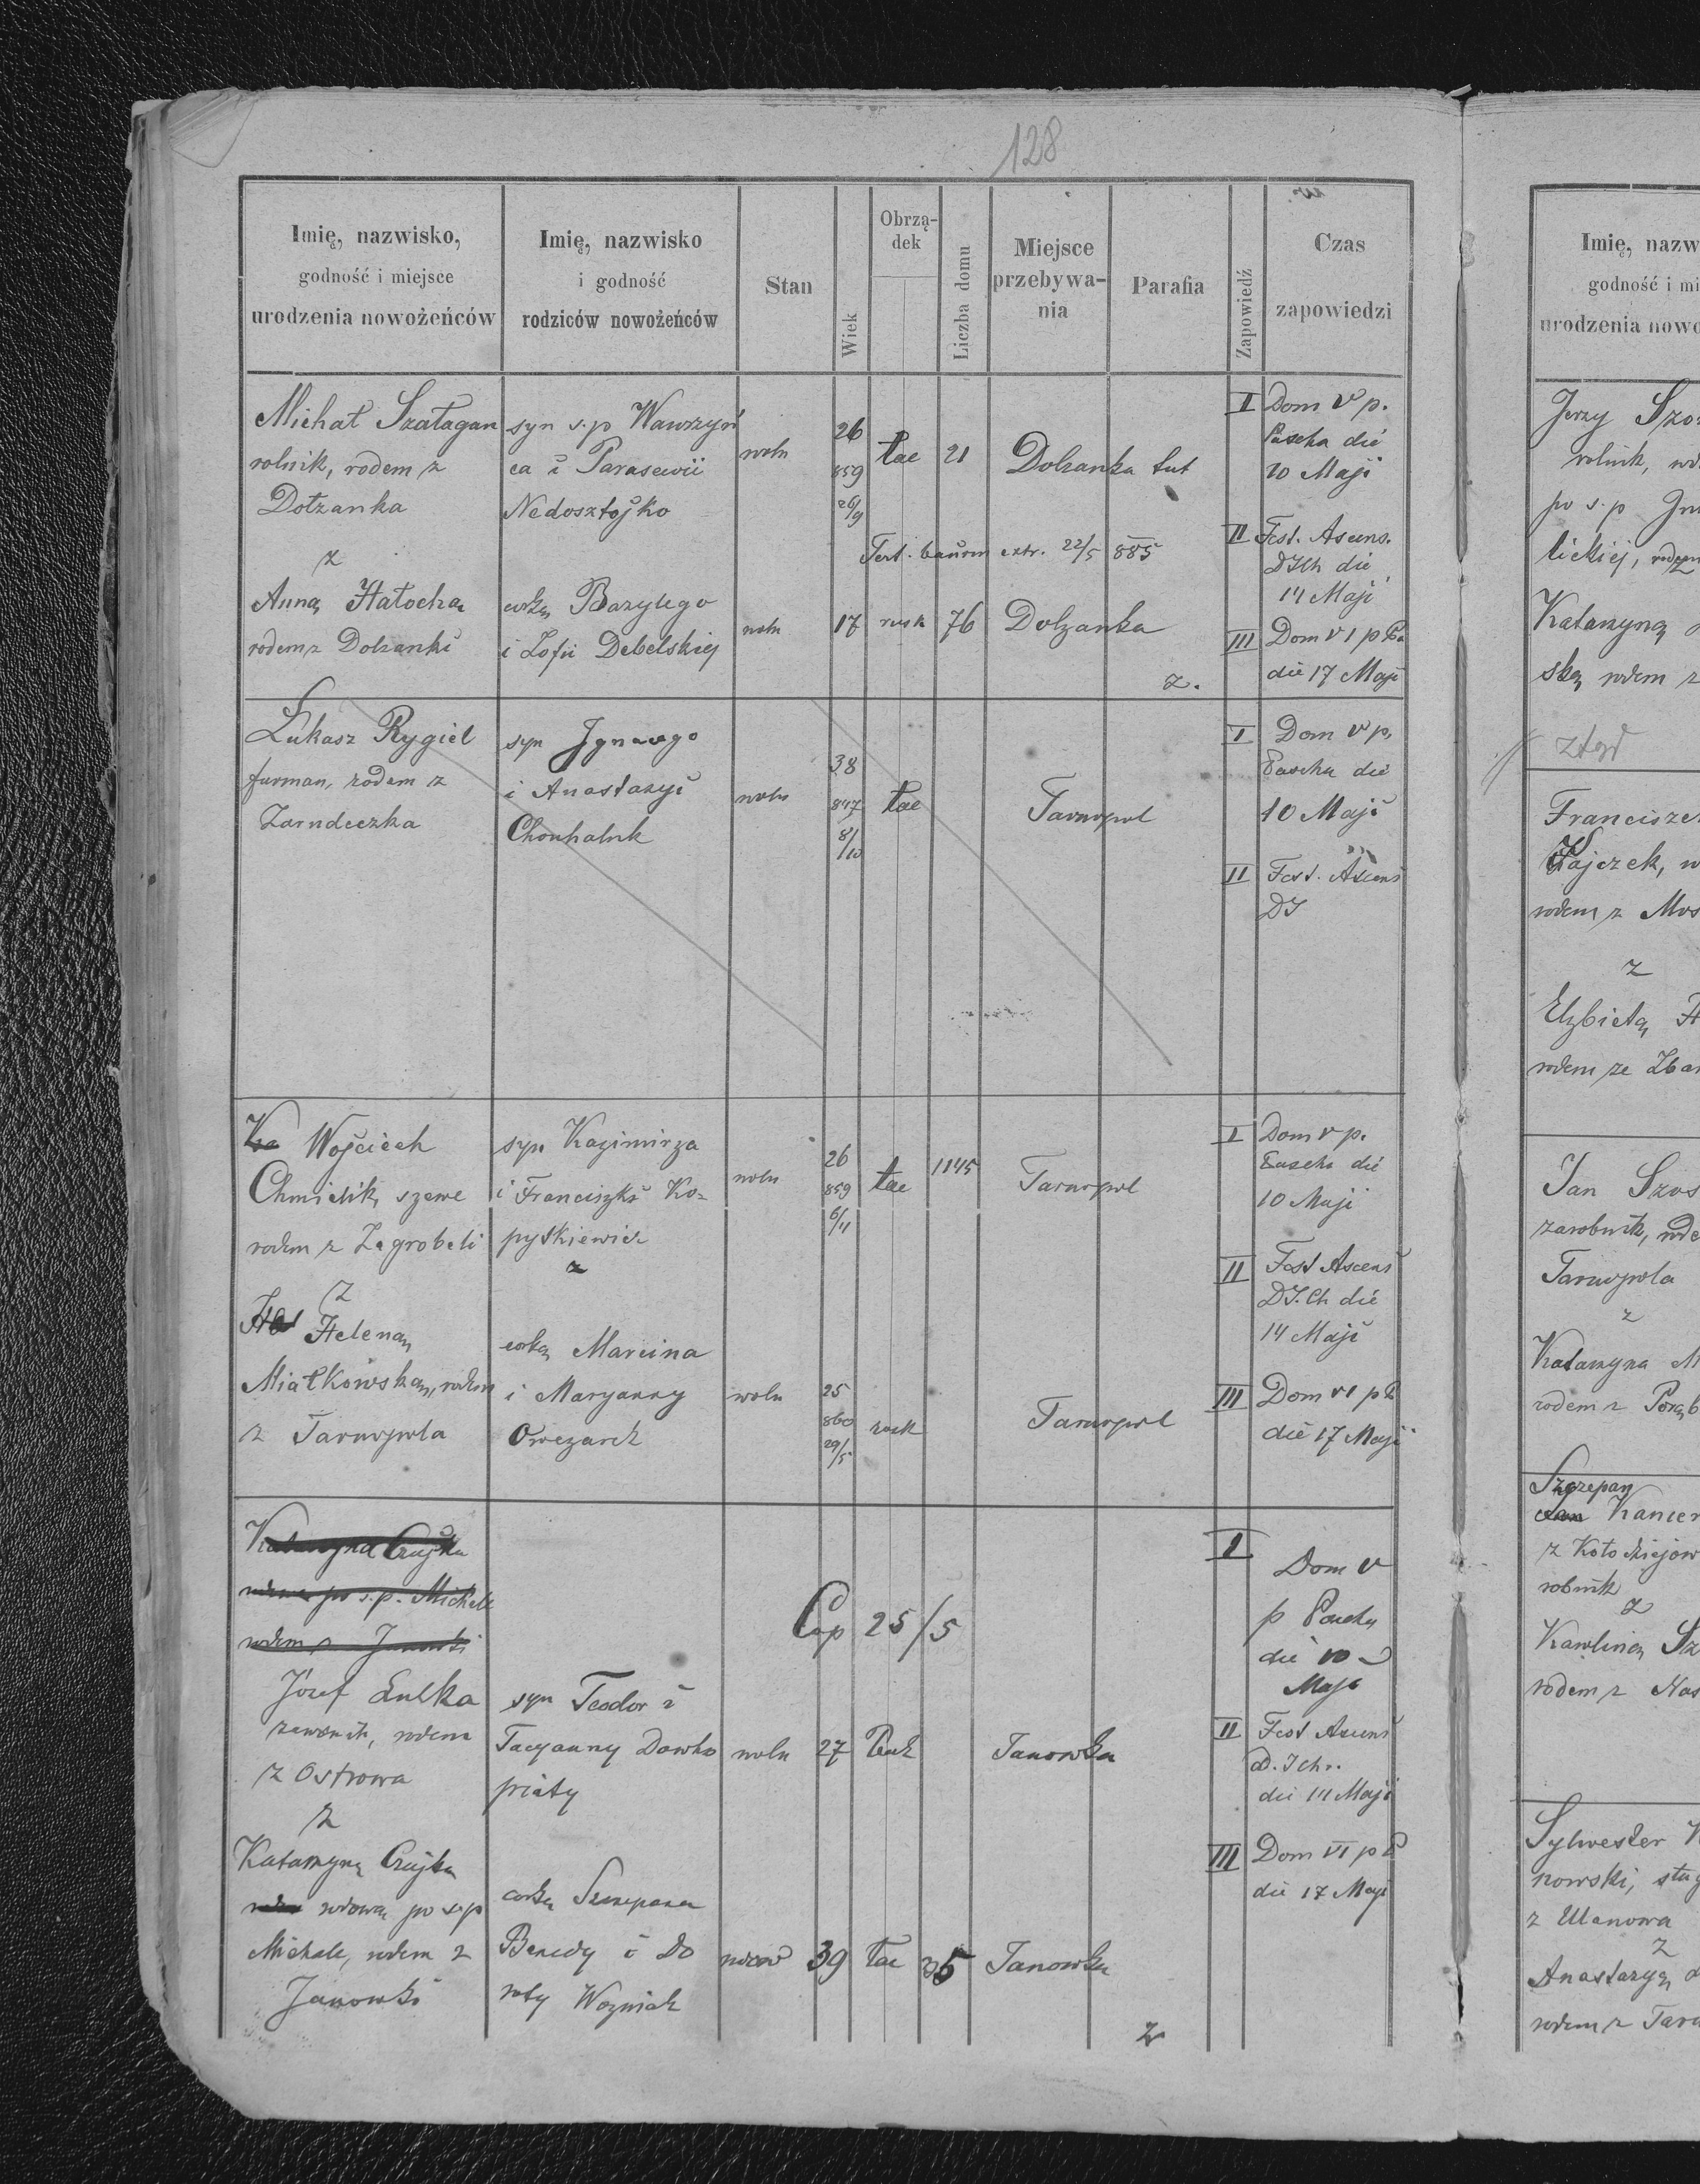 128
Imię, nazwisko,
godność i miejsce
urodzenia nowożeńców
Imię, nazwisko
i godność
rodziców nowożeńców
Stan
Wiek
Obrzą-
dek
Liczba domu
Miejsce
przebywa-
nia
Parafia
Zapowiedź
Czas
zapowiedzi
Michał Szałagan
rolnik, rodem z
Dołzanka
z
Anną Hałocha
rodem z Dolzanki
syn s.p Wawrzyń
ca i Parasewii
Nedosztojko
corką Bazylego
i Zofii Debelskiej
woln
26
859
26/9
łac
21
Dolzanka tut
Test. bannm extr. 22/5 885
woln
17
rusk
76
Dolzanka
z.
I Dom V p.
Pascha die
10 Maji
II Fest. Ascens.
DJCh die
14 Maji
III Dom VI p Pa
die 17 Maji
Łukasz Rygiel
furman, rodem z
Zarudeczka
syn Ignacego
i Anastazyi
woln
38
847
8/10
łac
Tarnopol
I Dom V p.
Pascha die
10 Maji
II Fest. Ascens
DJ
Wojciech
Chmielik, szewc
rodem z Zagrobeli
z
Heleną
Miałkowską, rodem
z Tarnopola
syn Kazimirza
i Franciszki Ko-
pytkiewicz
z
corką Marcina
i Maryanny
Owczarek
woln
26
859
6/11
łac
1145
Tarnopol
woln
25
860
29/5
rusk
Tarnopol
I Dom V p.
Pascha die
10 Maji
II Fest Ascens
DJ.Ch die
14 Maji
III Dom VI p P
die 17 Maji
Katarzyna Czajka
po s.p. Michale
rodem z Janowki
Józef Lulka
rodem
z Ostrowa
z
Katarzyną Czajka
wdową po s.p
Michale, rodem z
Janowki
syn Teodor i
Tacyanny Dowho
priaty
corką Szczepana
Benedy i Do
roty Wozniak
Cap 25/5
woln
27
Janowka
wdow
39
łac
35
Janowka
z
I
Dom V
p Pascha
die 10
Maji
II Fest Ascens
D. J Chr.
die 14 Maji
III Dom VI p P
die 17 Maji
Imię, nazw
godność i mi
urodzenia nowo
Jerzy Szo
rolnik, wd
po s.p
lickiej, rodem
Katarzyną
ską rodem z
ztąd
Francisze
Kajczek, w
rodem z Mos
z
Elzbietą H
rodem ze Zbar
Jan Szos
zarobnik, rode
Tarnopola
z
Katarzyna M
rodem z Porąb
Szczepan
Jan Kamer
z Kołodziejow
robnik
z
Karoliną Sz
rodem z Nas
Sylwester K
nowski, sług
z Ulanowa
z
Anastazyą
rodem z Tarn